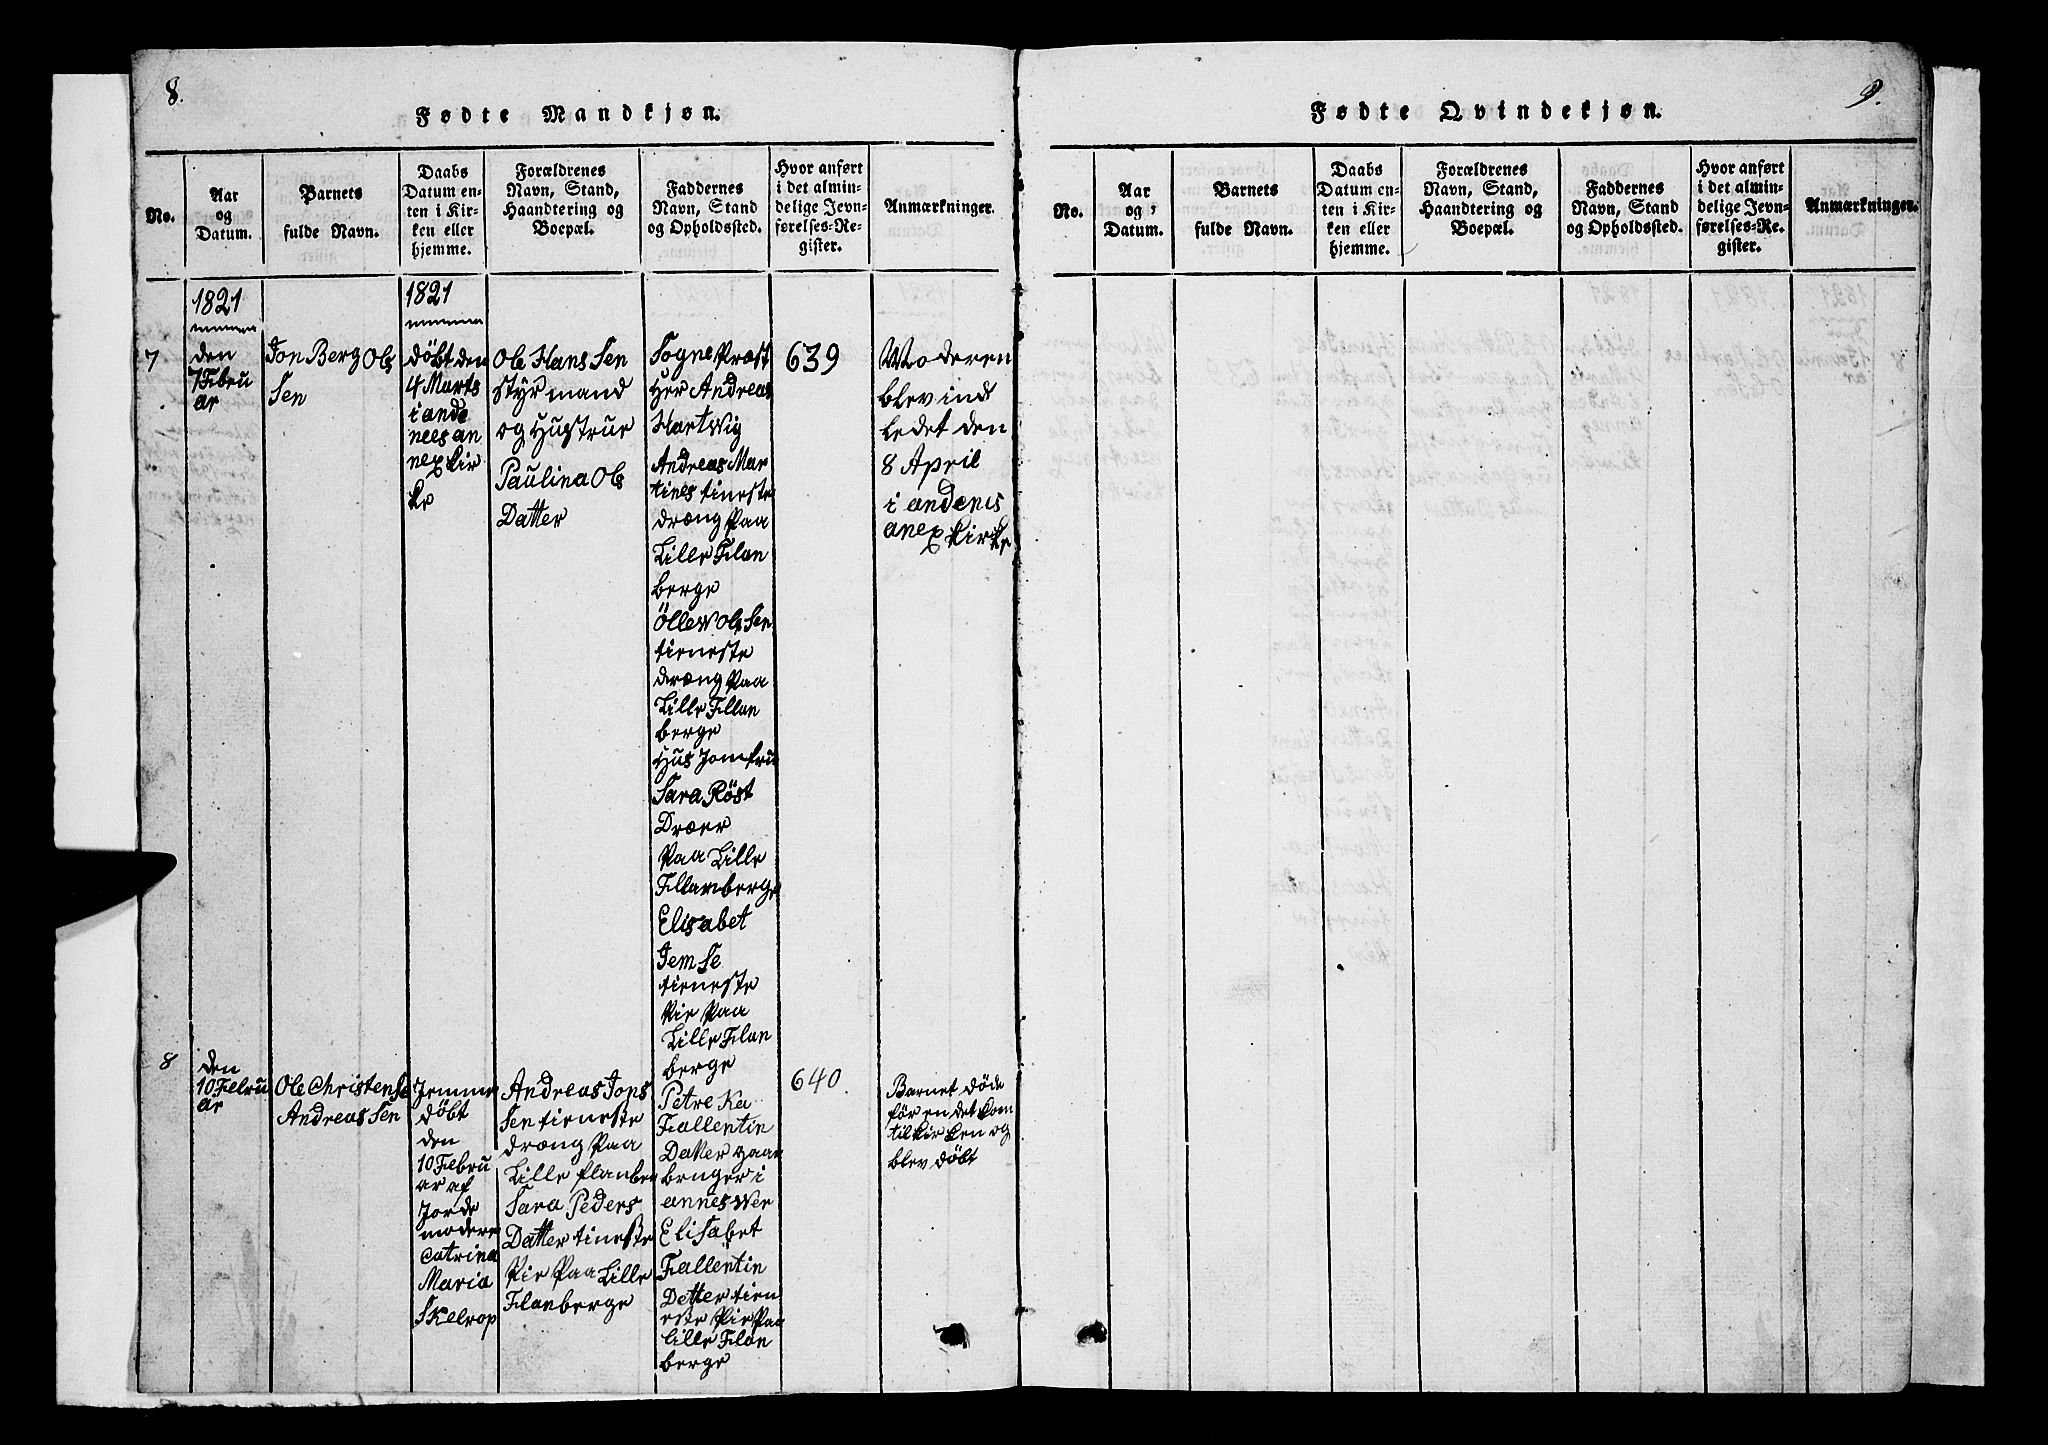 8.
Fødte Mandkjøn.
No.
Aar
og
Datum.
Barnets
fulde Navn.
Daabs
Datum en-
ten i Kir-
ken eller
hjemme.
Forældrenes
Navn, Stand,
Haandtering og
Boepæl.
Faddernes
Navn, Stand
og Opholdssted.
Hvor anført
i det almin-
delige Jevn-
førelses-Re-
gister.
Anmærkninger.
7
1821
den
7 Febru
ar
Jon Berg Ols
Sen
1821
döbt den
4 Marts
i ande
nees an
nex kir
ke
Ole Hans Sen
Styrmand
og Hustrue
Paulina Ols
Datter
Sogne Præst
Her Andreas
Hartwig
Andreas Mar
tines tineste
dræng Paa
Lille Flan
berge
Öllew Ols Sen
tieneste
dræng Paa
Lille Fllan
berge
Hus Jomfru
Sara Röst
Dræer
Paa Lille
Fllanberge
Elisabet
Jem Se
tieneste
Pie Paa
Lille Flan
berge
639
Moderen
blev ind
ledet den
8 April
i andenis
anex kirke
8
den
10 Febru
ar
Ole Christense
Andreas Sen
Jemme
döbt
den
10 Febru
ar af
Jorde
modere
Catrina
Maria
Skelrop
Andreas Jons
Sen tieneste
dræng Paa
Lille flanber
Sara Peders
Datter tineste
Pie Paa Lille
Flanberge
Petre Ka
Fallentin
Datter gaar
bruger i
annes wer
Elisabet
Fallentin
Detter tien
este Pie Paa
Lille Flan
berge
640
Barnet döde
för en det kom
til kirken og
blev döbt
9.
Fødte Qvindekjøn.
No.
Aar
og
Datum.
Barnets
fulde Navn.
Daabs
Datum en-
ten i Kir-
ken eller
hjemme.
Forældrenes
Navn, Stand,
Haandtering og
Boepæl.
Faddernes
Navn, Stand
og Opholdssted.
Hvor anført
i det almin-
delige Jevn-
førelses-Re-
gister.
Anmærkninger.